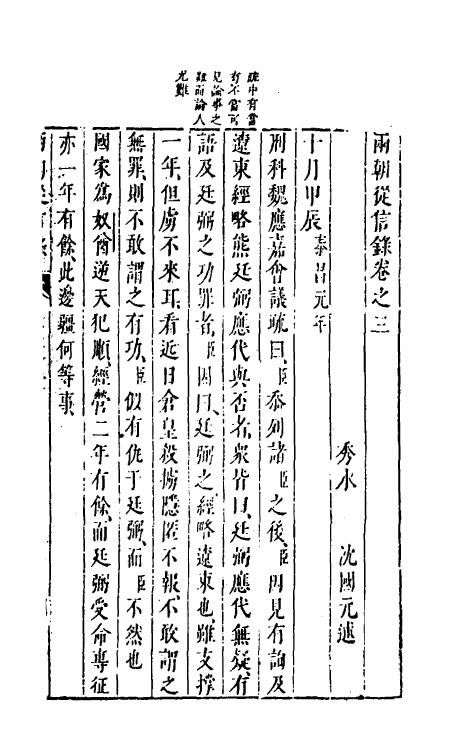 疏中有當
有不當可
見論事之
難而論人
尤難
兩朝從信錄卷之三
秀水 沈國元述
十月甲辰 泰昌元年
刑科魏應嘉會議疏曰臣叅列諸臣之後臣因見有詢及
遼東經略熊廷弼應代與否者衆皆曰廷弼應代無疑有
語及廷弼之功罪者臣因曰廷弼之經略遼東也雖支撐
一年但虜不來耳看近日倉皇殺擄隱匿不報不敢謂之
無罪則不敢謂之有功臣似有仇于廷弼而臣不然也
國家為奴酋逆天犯順經營二年有餘而廷弼受命專征
亦一年有餘此邊疆何等事